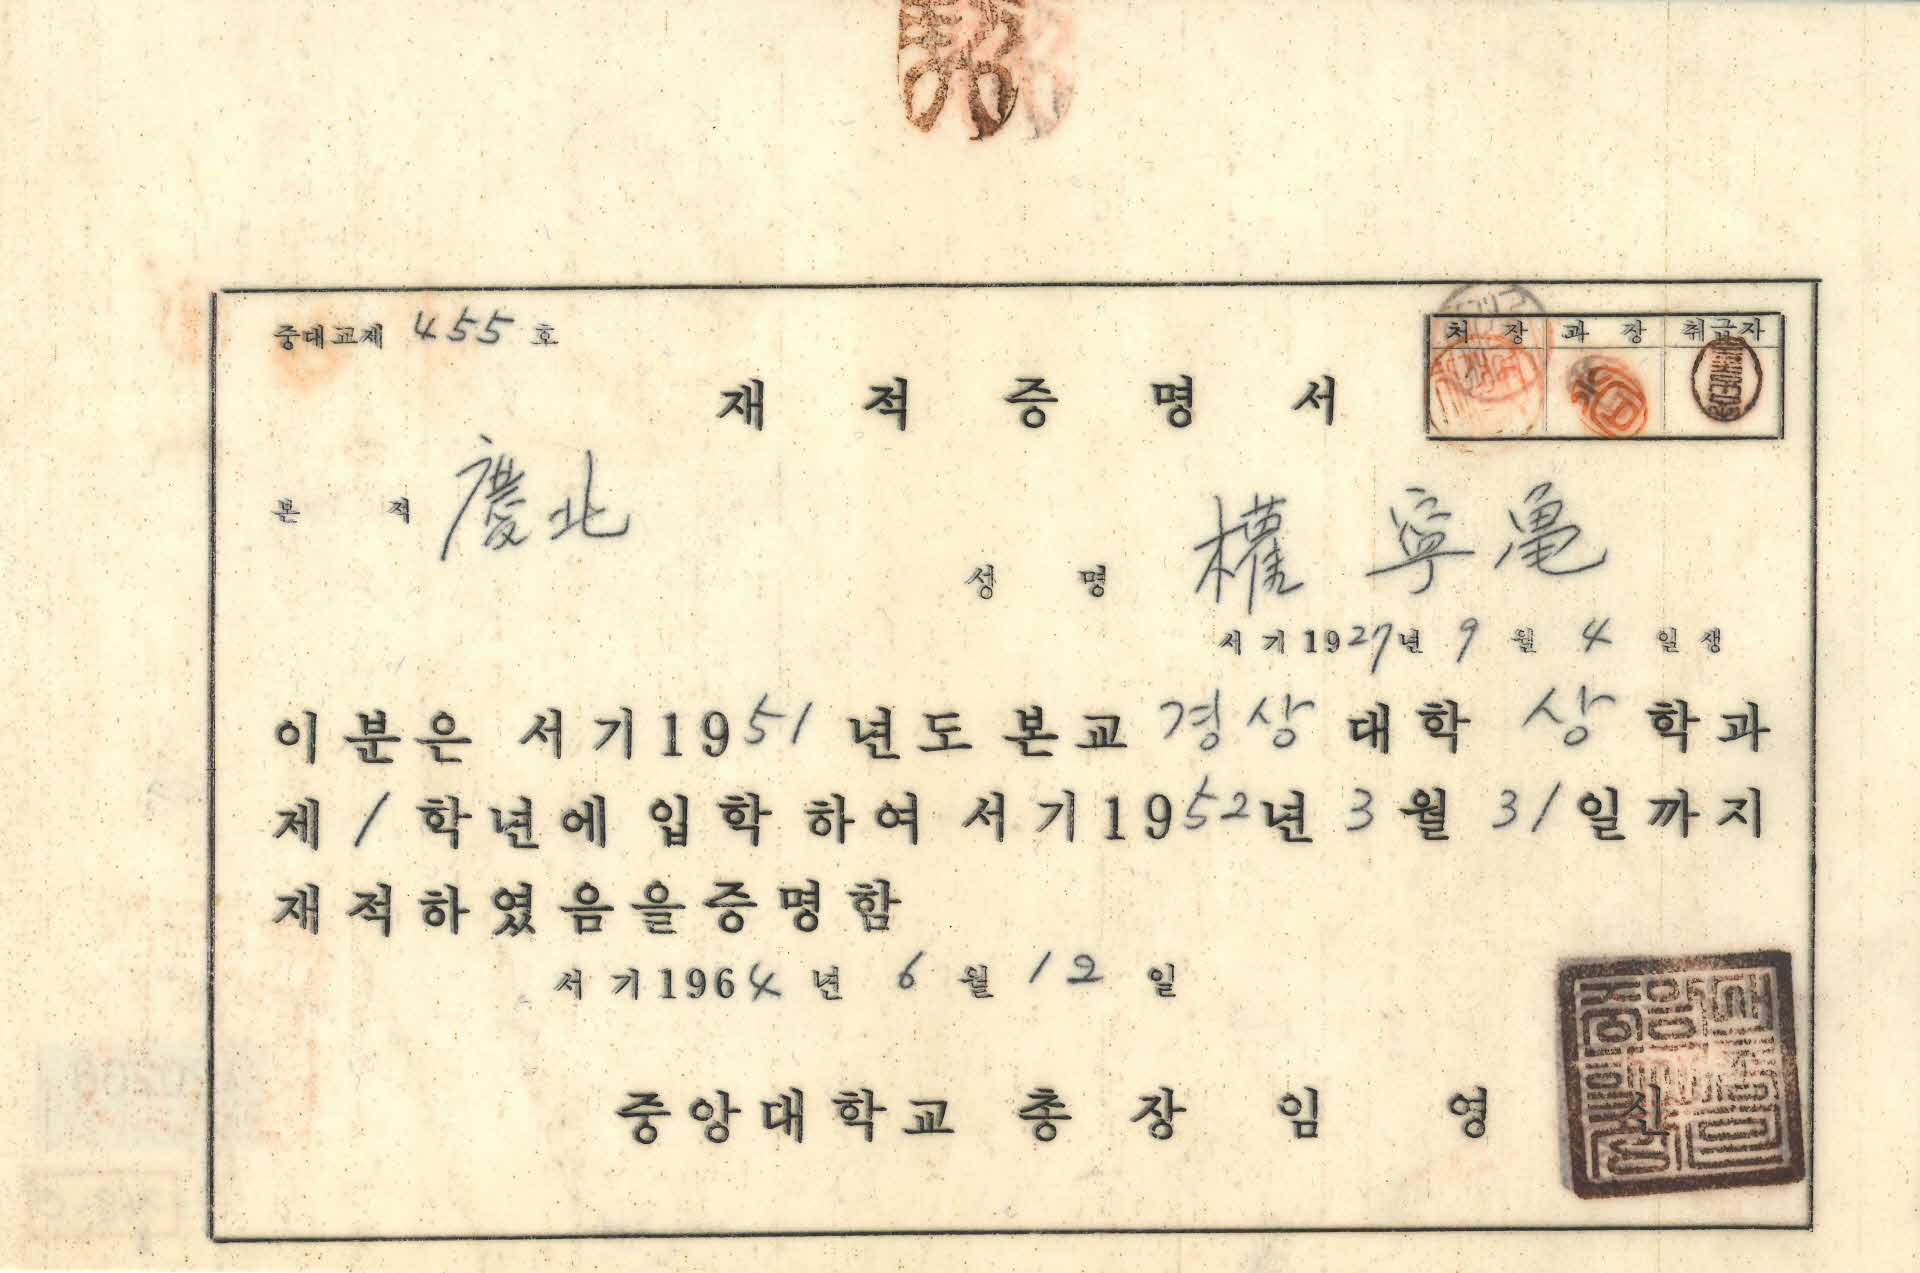 중대교제 455 호
처 장 과 장 취급자
재 적 증 명 서
본 적 慶北
성 명 權 寧 亀
서기 1927년 9 월 4 일생
이 분은 서기 1951 년도 본교 경상 대학 상 학과
제 1 학년에 입학하여 서기 1952년 3 월 31일까지
재적하였음을증명함
서기 1964 년 6 월 12 일
중앙대학교 총 장 임 영 신